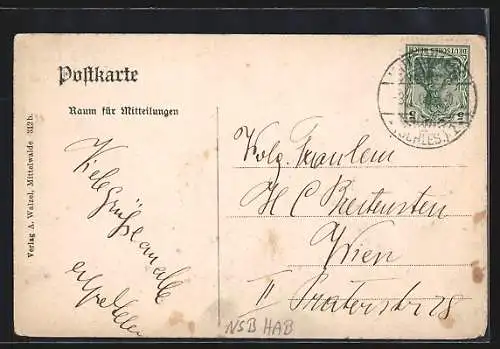 Postkarte
Raum für Mitteilungen
Verlag A. Walzel, Mittelwalde 312b.
Viele Grüße an alle
DEUTSCHES REICH
5
(SCHLES.)
Wolg. Fräulein
H C Breitensten
Wien
II Praterstr 28
NSB HAB